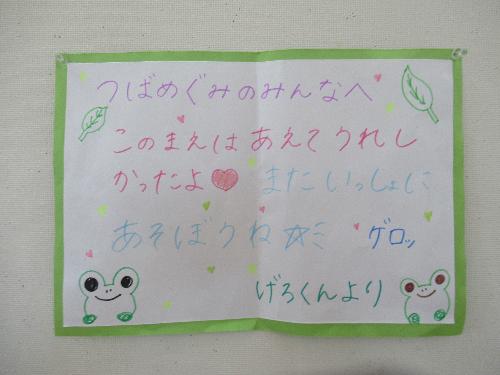 つばめぐみのみんなへ
このまえは あえて うれし
かったよ♥ またいっしょに
あそぼうね☆ミ ゲロッ
げろくんより